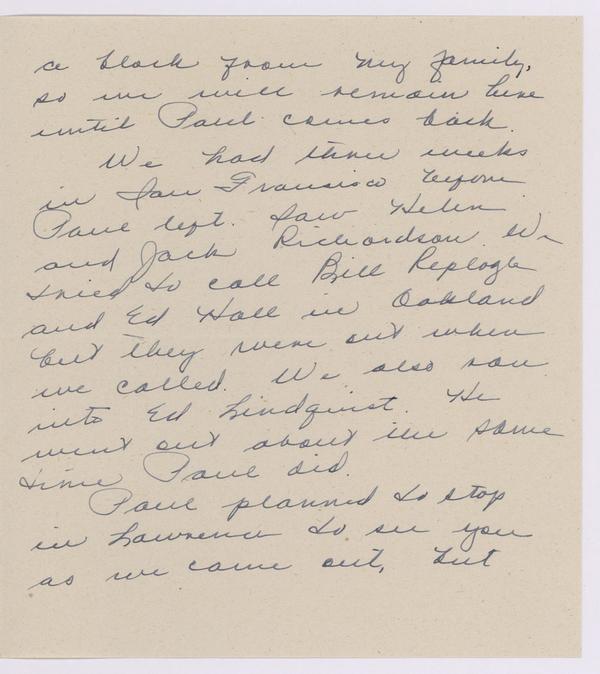 a block from my family,
so we will remain here
until Paul comes back.
We had three weeks
in San Fransisco before
Paul left. Saw Helen
and Jack Richardson. We
tried to call Bill Replogle
and Ed Hall in Oakland
but they were out when
we called. We also ran
into Ed Lindquist. He
went out about the same
time Paul did.
Paul planned to stop
in Lawrence to see you
as we came out, but